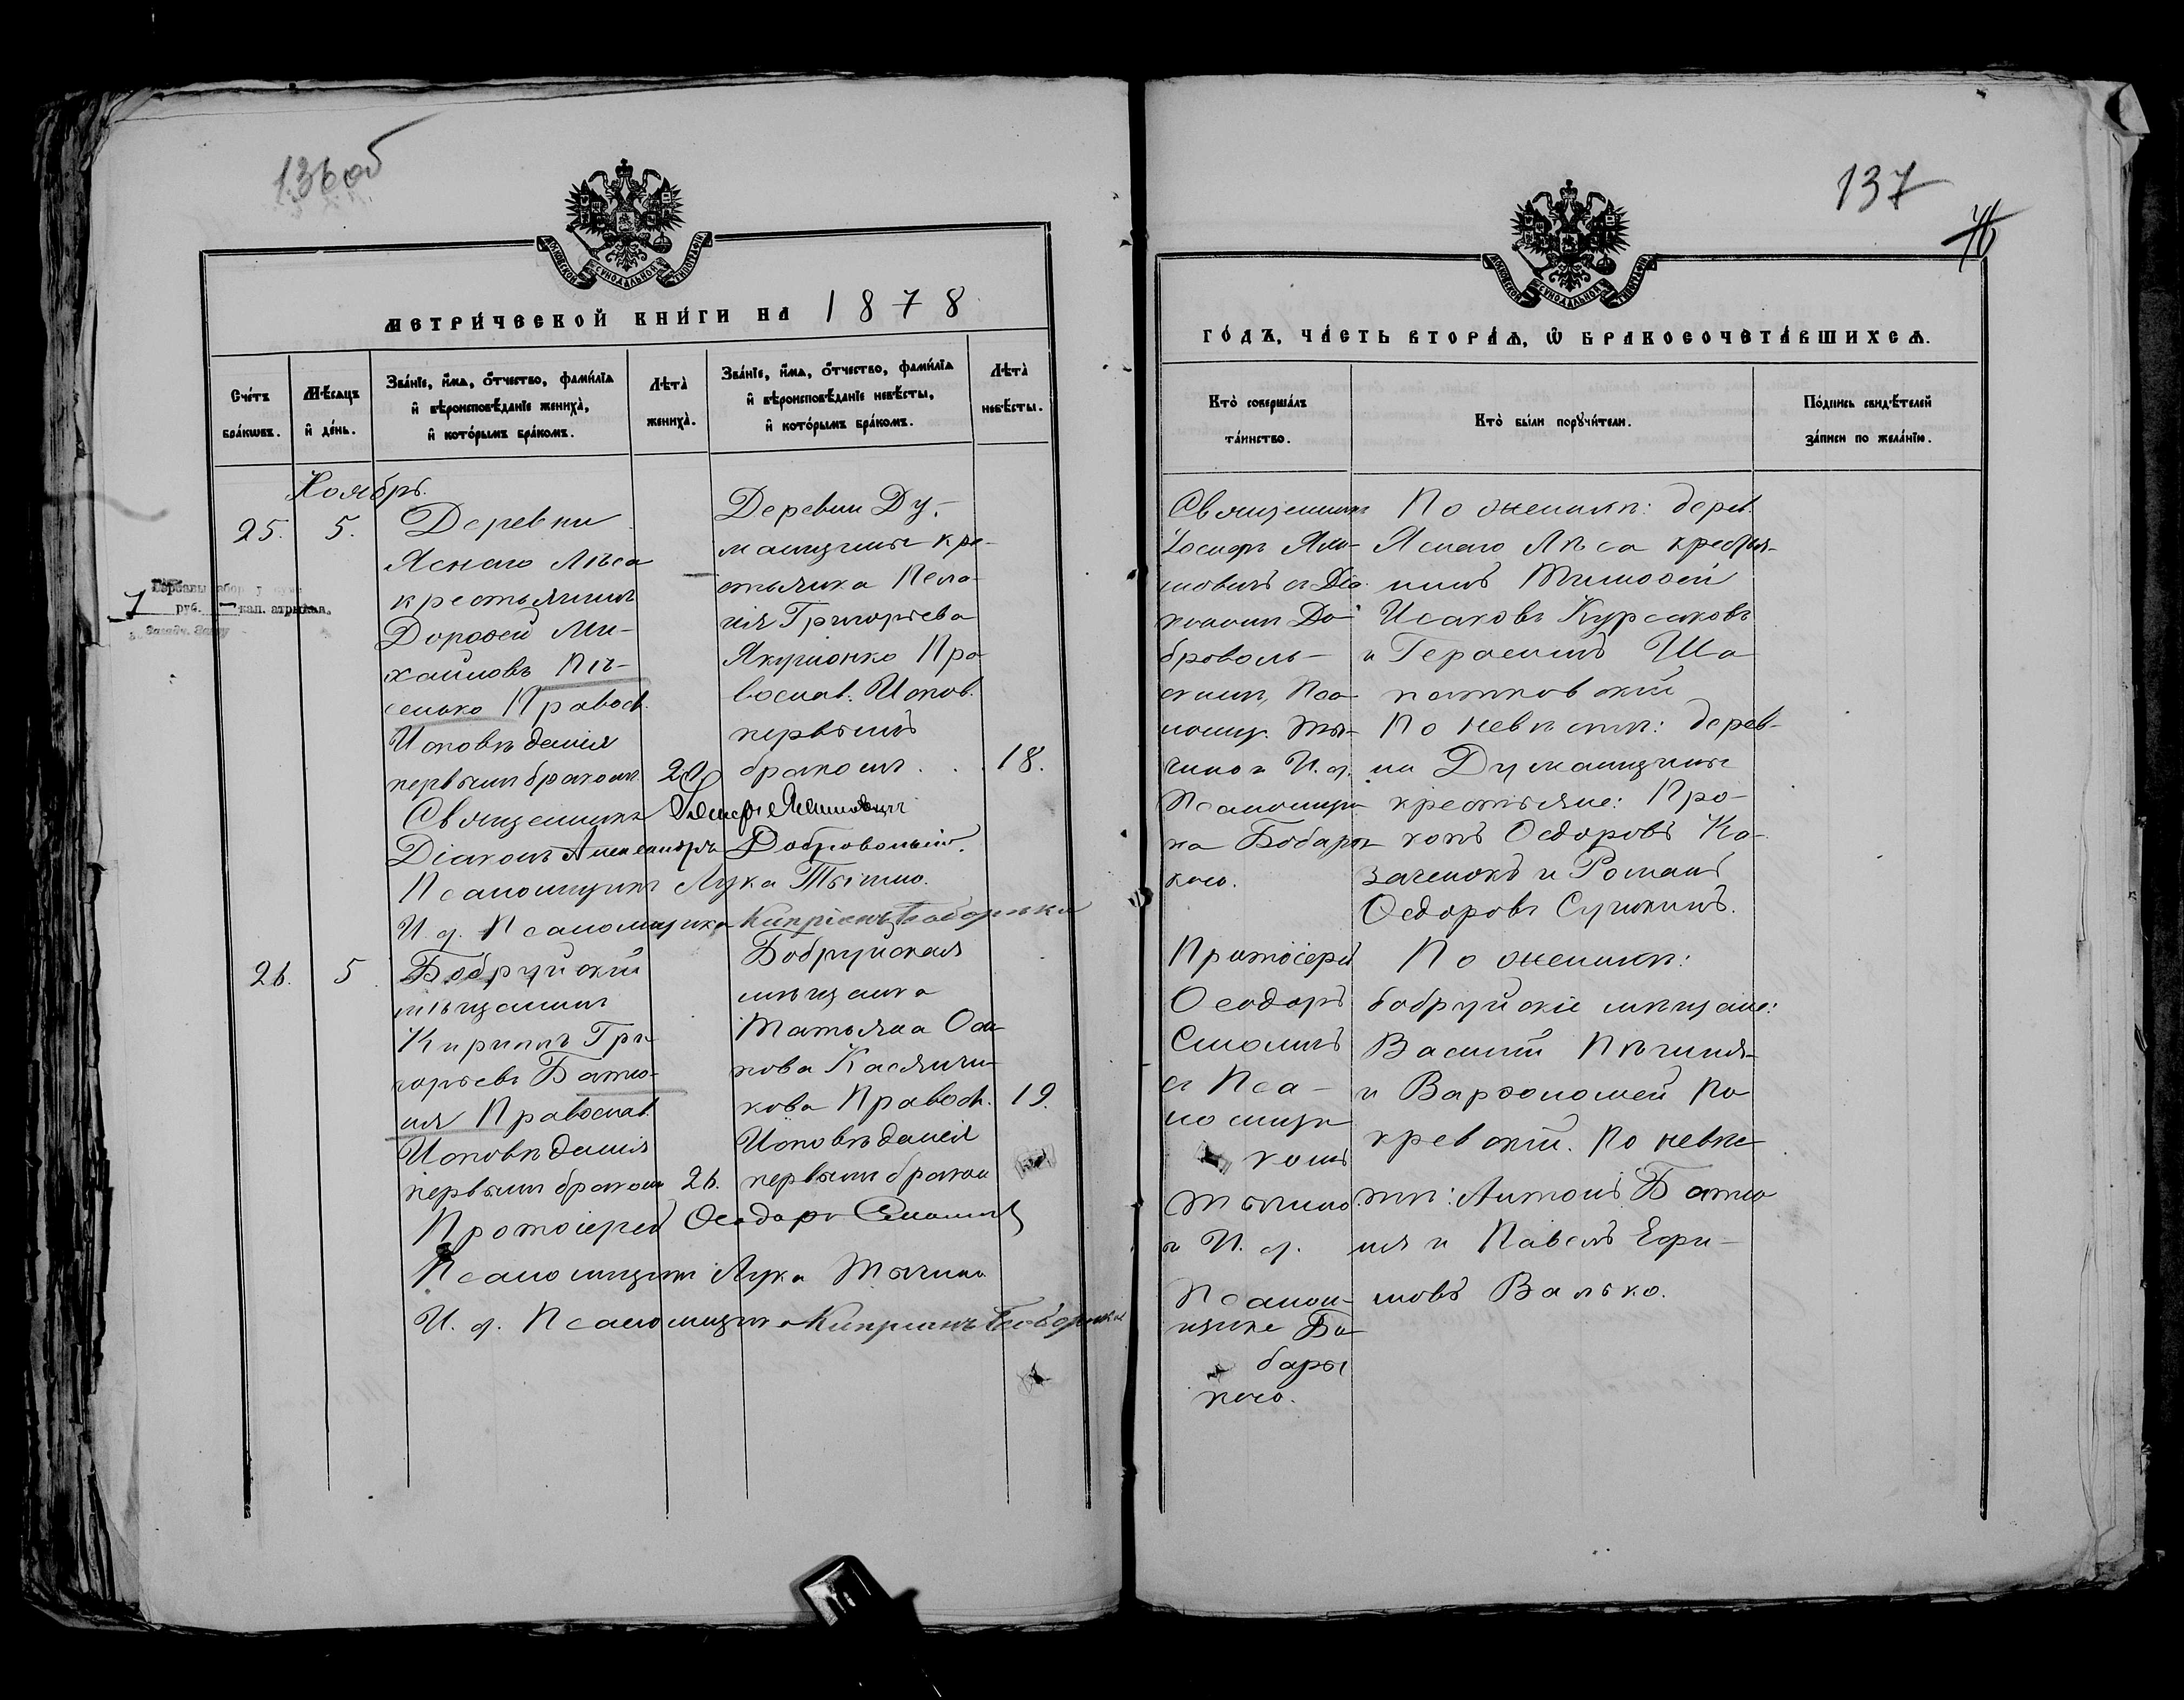 136 об
МОСКОВСКОЙ СѴНОДАЛЬНОЙ ТИПОГРАФІИ
МЕТРИ́ЧЕСКОЙ КНИ́ГИ НА 1878
Сче́тъ бра́кѡвъ.
Мѣ́сяцъ и҆ де́нь.
Зва́нїе, и҆́мѧ, ѻ҆́тчество, фами́лїѧ
и҆ вѣроисповѣ́данїе жениха̀,
и҆ кото́рымъ бра́комъ.
Лѣта̀ жениха̀.
Зва́нїе, и҆́мѧ, ѻ҆́тчество, фами́лїѧ
и҆ вѣроисповѣ́данїе невѣ́сты,
и҆ кото́рымъ бра́комъ.
Лѣта̀ невѣ́сты.
Ноябрь.
25. 5.
Деревни
Яснаго Лѣса
крестьянинъ
Дорофей Ми-
хайловъ Пѣ-
сенько Правосл.
Исповѣданія
первымъ бракомъ 20
Деревни Ду-
манщины кре-
стьянка Пела-
гія Григорьева
Якушонко Пра-
вослав. Испов.
первымъ
бракомъ . . . 18.
Священникъ Іосифъ
Діаконъ Александръ Добровольскій.
Псаломщикъ Лука Тычино.
И. д. Псаломщика Кипріанъ
руб. — кап. атрымал.
26. 5.
Бобруйскій
мѣщанинъ
Кириллъ Гри-
горьевъ Батю-
ня Православ.
Исповѣданія
первымъ бракомъ 26.
Бобруйская
мѣщанка
Татьяна Оси-
пова Касянчи-
кова Правосл. 19.
Исповѣданія
первымъ бракомъ
Протоіерей Ѳеодоръ Смоличъ
Псаломщикъ Лука Тычино
И. д. Псаломщика Кипріанъ
137
МОСКОВСКОЙ СѴНОДАЛЬНОЙ ТИПОГРАФІИ
ГО́ДЪ, ЧА́СТЬ ВТОРА́Ѧ, Ѽ БРАКОСОЧЕТА́ВШИХСѦ.
Кто̀ соверша́лъ та́инство.
Кто̀ бы́ли порꙋчи́тели.
По́дпись свидѣ́телей за́писи по жела́нїю.
Священникъ
Іосифъ Яки-
мовичъ съ Діа-
кономъ До-
броволь-
скимъ, Пса-
ломщ. Ты-
чино и И. д.
Псаломщи-
ка Бобары-
кою.
По женихѣ: дерев.
Яснаго Лѣса крестья-
нинъ Тимофей
Исаковъ Курсаковъ
и Герасимъ Ша-
патковскій
По невѣстѣ: дерев-
ни Думанщины
крестьяне: Про-
копъ Ѳедоровъ Ка-
заченокъ и Романъ
Ѳедоровъ Сушкинъ.
Протоіерей
Ѳеодоръ
Смоличъ
съ Пса-
ломщи-
комъ
Тычино
и И. д.
Псалом-
щика Бо-
бары
кою.
По женихѣ:
бобруйскіе мѣщане:
Василій
и Варфоломей По-
кревскій. По невѣс-
тѣ: Антонъ Батю-
ня и Павелъ Ефи-
мовъ Валько.